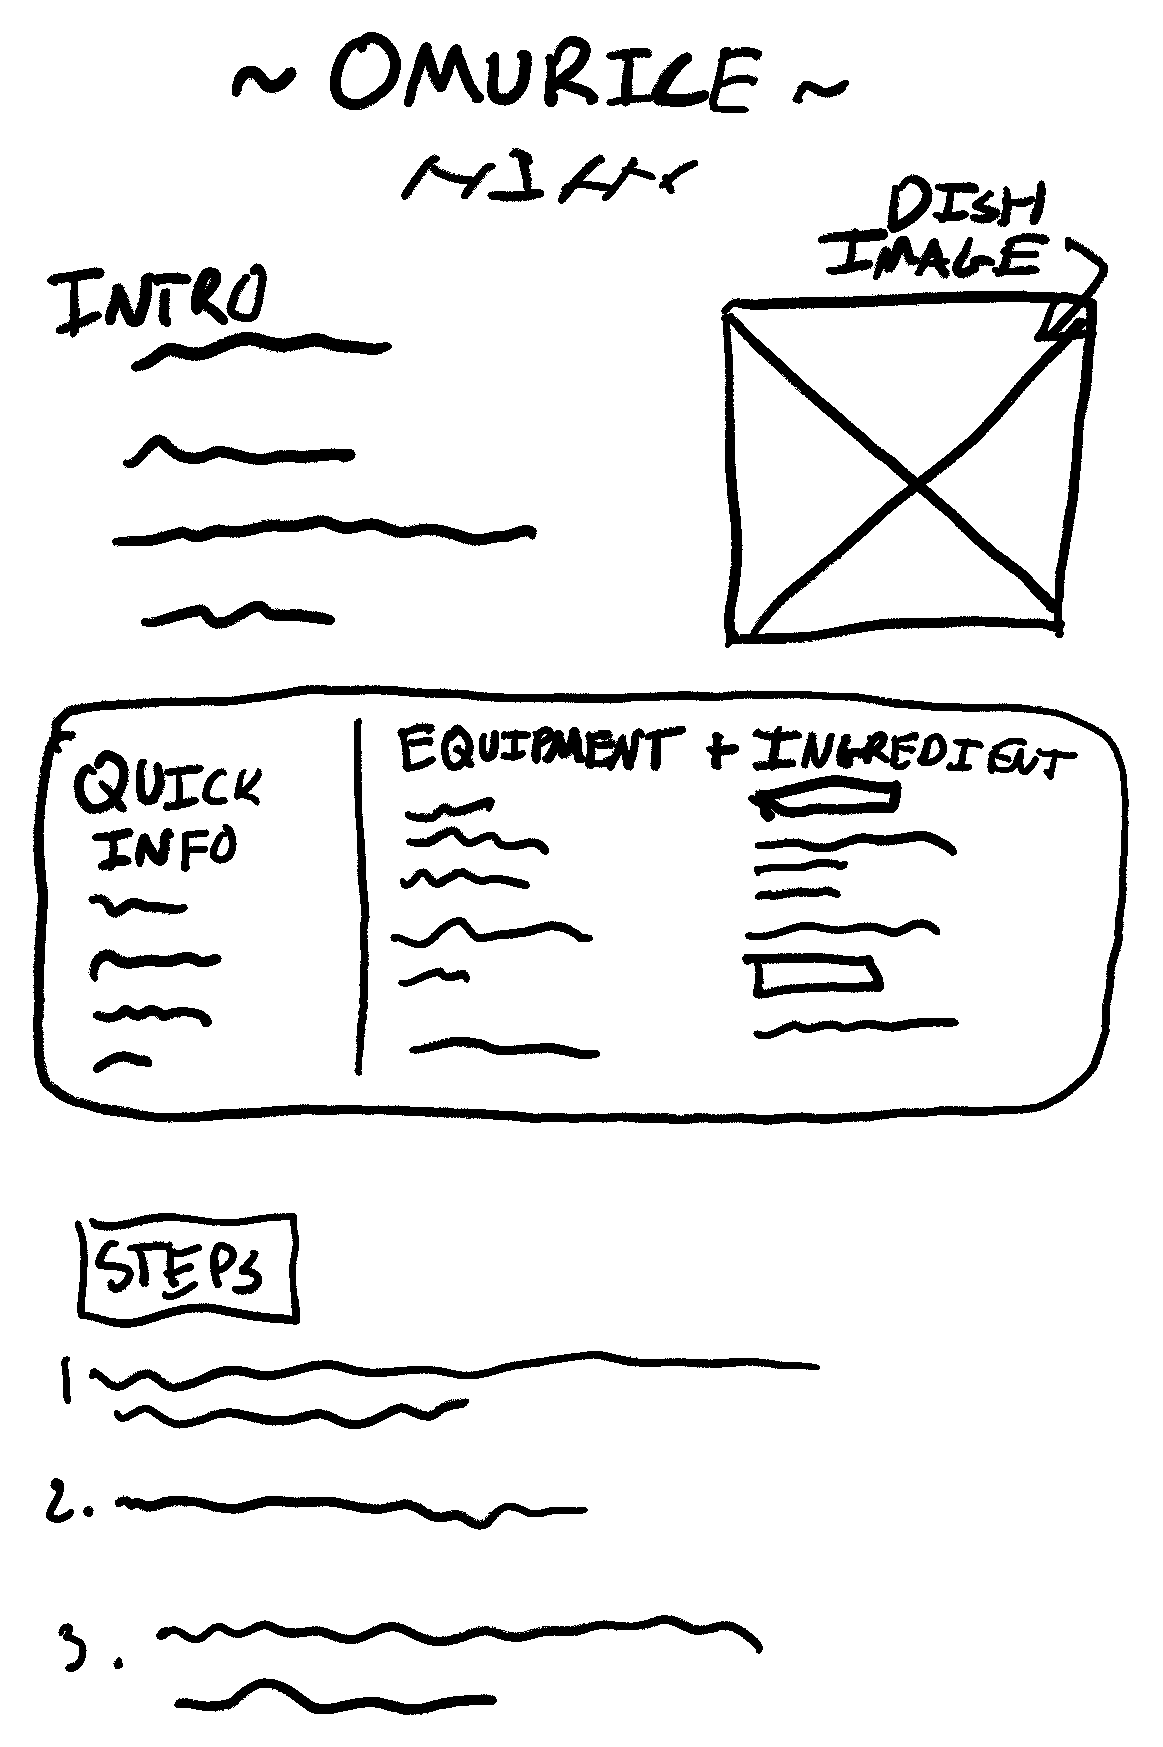 ~ OMURICE ~
DISH
IMAGE
INTRO
QUICK
INFO
EQUIPMENT + INGREDIENT
STEPS
1
2.
3.